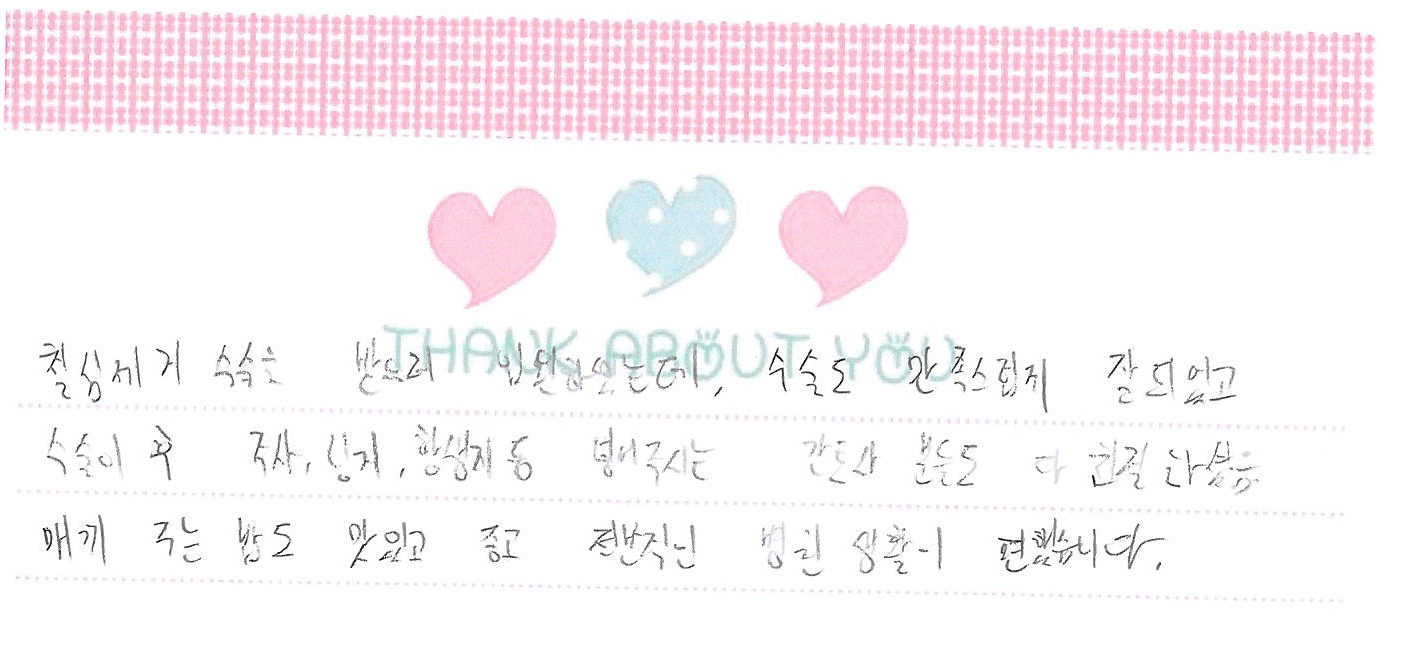 THANK ABOUT YOU
철심제거 수술을 받으러 입원했었는데, 수술도 만족스럽게 잘되었고
수술이후 주사, 항생제 등 넣어주시는 간호사 분들도 다 친절하셨음
매끼 주는 밥도 맛있고 좋고 전반적인 병원 생활이 편했습니다.